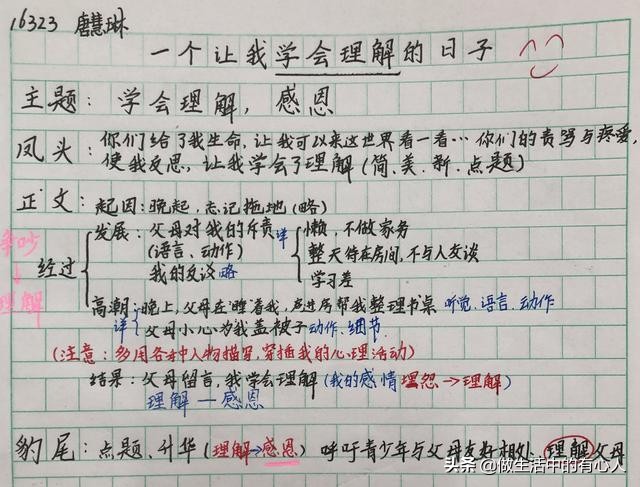 16323 唐慧琳
一个让我学会理解的日子
主题：学会理解，感恩
凤头：你们给了我生命，让我可以来这世界看一看…你们的责骂与疼爱，
使我反思，让我学会了理解（简、美、新、点题）
正文：起因：晚起，忘记拖地（略）
发展：父母对我的斥责 详 懒，不做家务
（语言、动作） 整天待在房间，不与人交谈
争吵↓理解 经过 我的反议 略 学习差
高潮：晚上，父母在睡着我，进房帮我整理书桌 听觉、语言、动作
详 父母小心为我盖被子 动作、细节
（注意：多用各种人物描写，穿插我的心理活动）
结果：父母留言，我学会理解（我的感情埋怨→理解）
理解—感恩
豹尾：点题、升华（理解→感恩） 呼吁青少年与父母友好相处、理解父母
头条 @做生活中的有心人